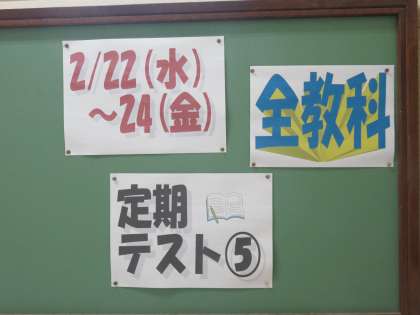 2/22(水)
～24(金)
全教科
定期
テスト⑤